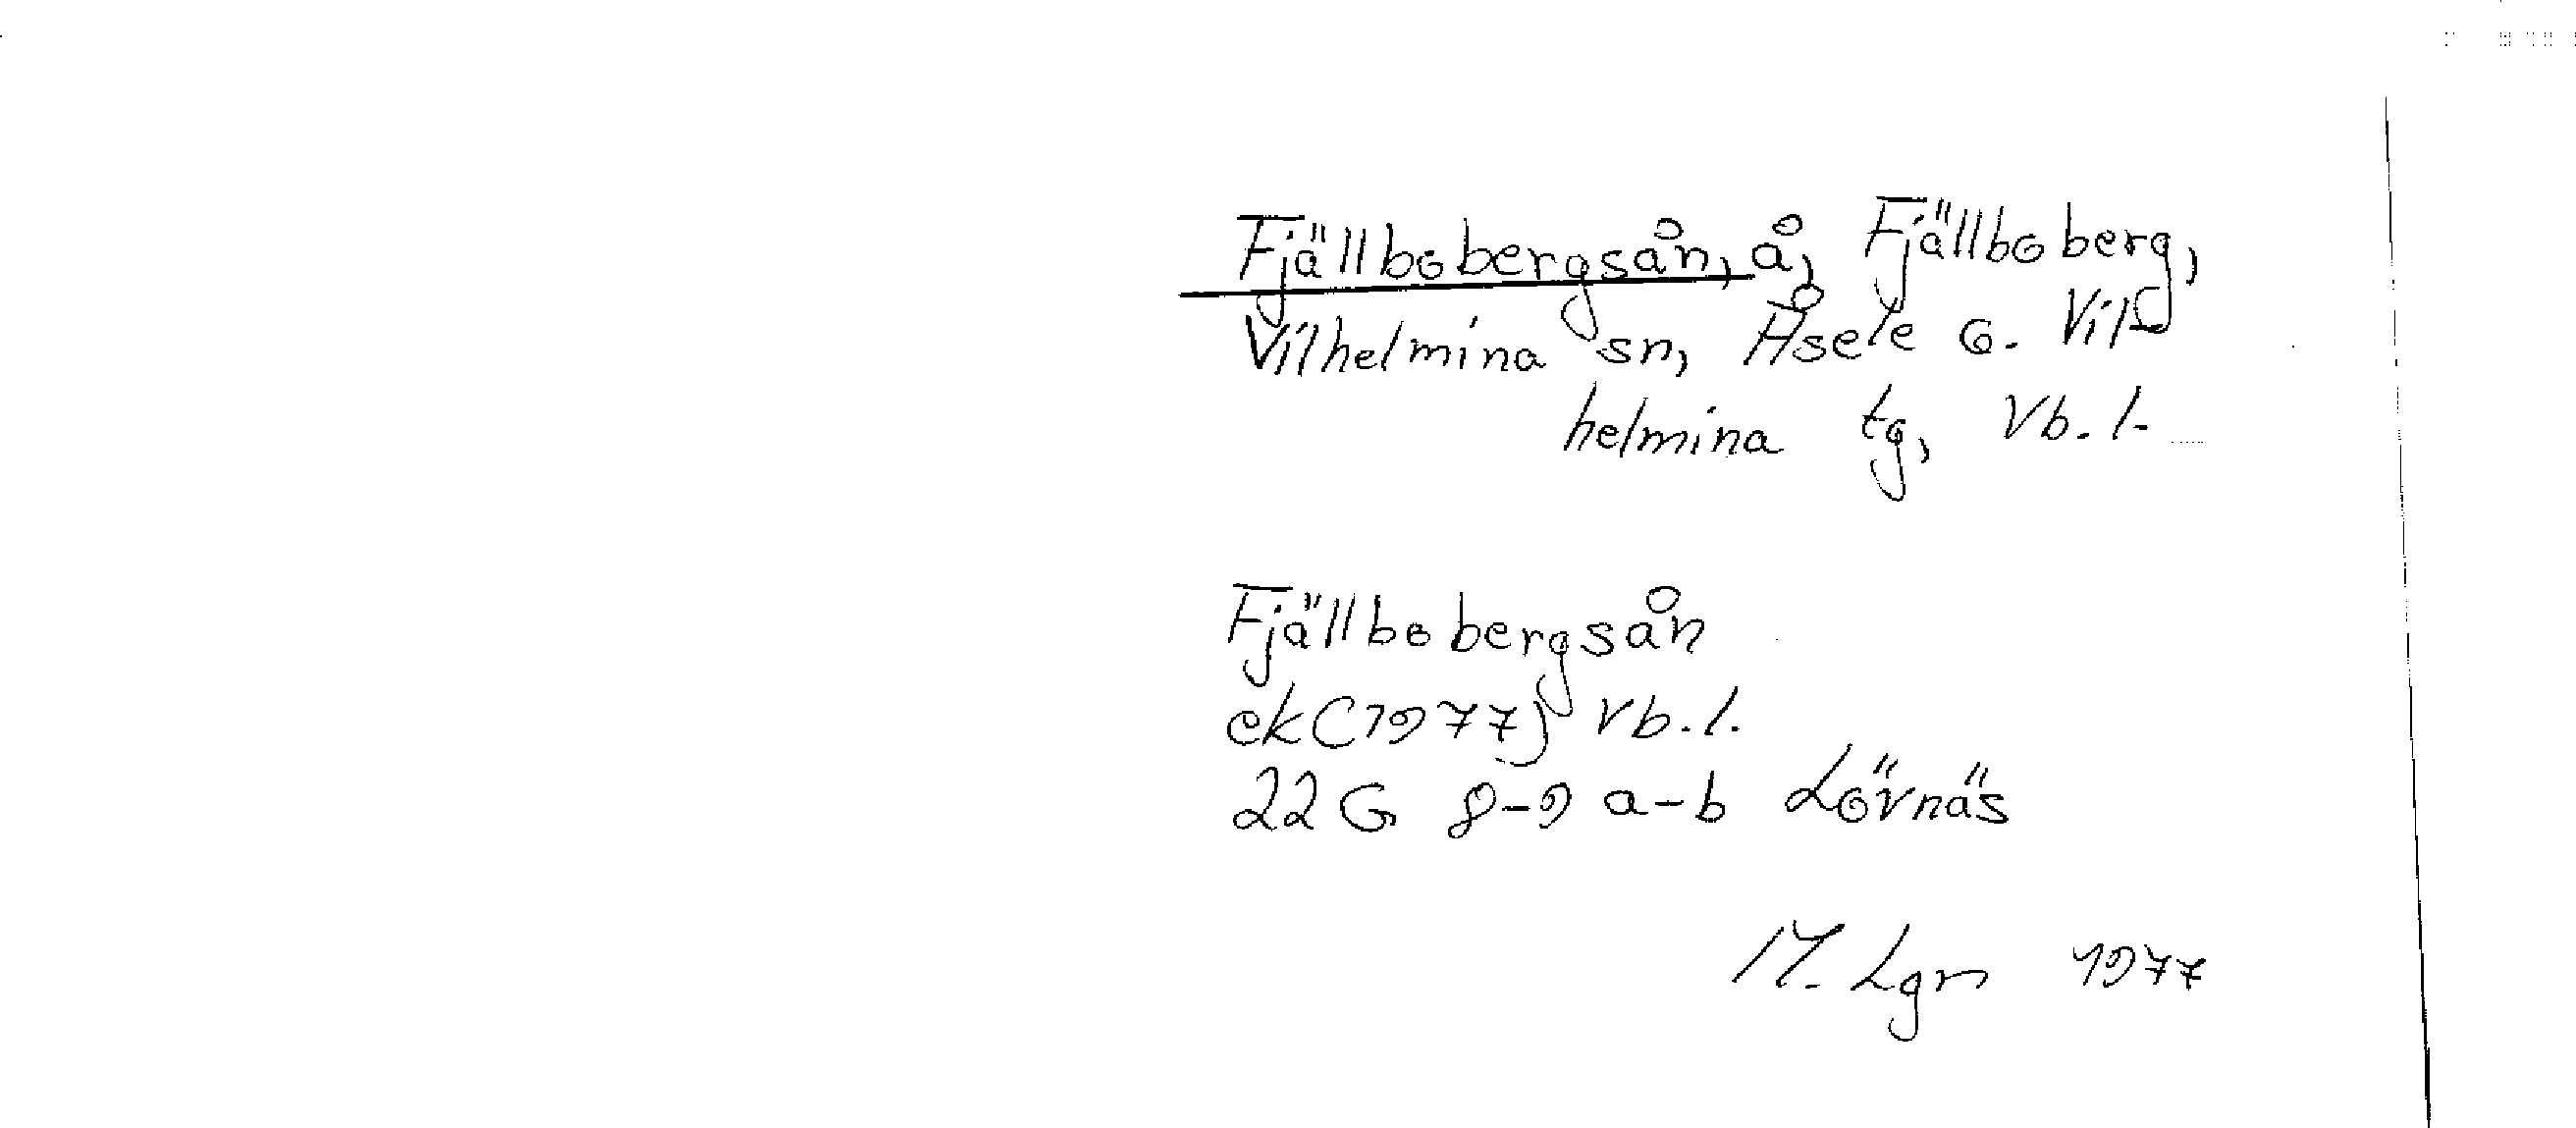 Fjällbobergsån, å, Fjällboberg,
Vilhelmina sn, Åsele o. Vil-
helmina tg, Vb. l.
Fjällbobergsån
ek (1977) Vb. l.
22 G 8-9 a-b Lövnäs
M. Lgn 1977